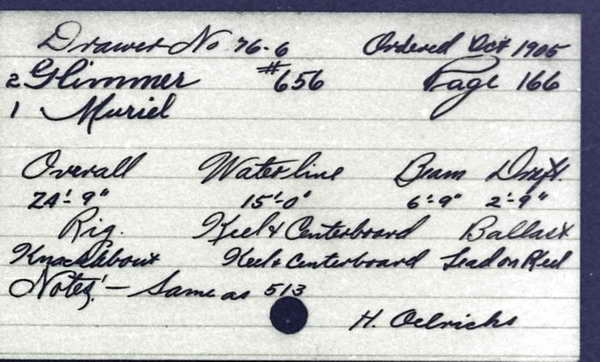 Drawer No. 76-6 Ordered Oct 1905
2 Glimmer #656 Page 166
1 Muriel
Overall Waterline Beam Draft.
24'-9" 15'-0" 6'-9" 2'-9"
Rig. Keel & Centerboard Ballast
Knockabout Keel & Centerboard Lead on Keel
Notes! - Same as 513
H. Oelrichs